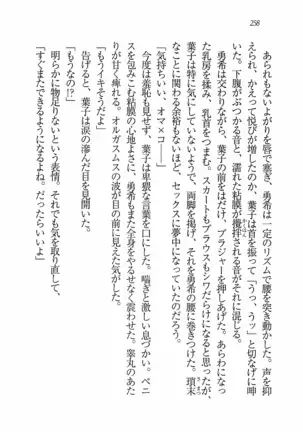 258
あられもないよがりを唇で塞ぎ、勇希は一定のリズムで腰を突き動かした。声を抑
えられ、かえって悦びが増したのか、葉子は首を振って「うっ、うッ」と切なげに呻
いた。下腹がぶつかる音と、濡れた粘膜が攪拌される音がそれに混じる。
勇希は交わりながら、葉子の前をはだけ、ブラジャーを押しあげた。あらわになっ
た乳房を揉み、乳首をつまむ。スカートもブラウスもシワだらけになると思ったが、
葉子は特に気にしていないようで、両脚を掲げ、それを勇希の腰に巻きつけた。瑣末
なことに関わる余裕もないほど、セックスに夢中になっていたのだろう。
「気持ちいい、オマ×コ――」
今度は羞恥も見せず、葉子は卑猥な言葉を口にした。喘ぎと激しい息づかい。ペニ
スを包みこむ粘膜の心地よさに、勇希もまた全身をやるせなく震わせた。睾丸のあた
りが甘く痺れる。オルガスムスの波が目の前に見えた気がした。
「もうイキそうだよ」
告げると、葉子は涙の滲んだ目を見開いた。
「もうなの!?」
明らかに物足りないという表情。それでも、すぐに気を取り直して、
「すぐまたできるようになるよねえ。だったらいいよ」